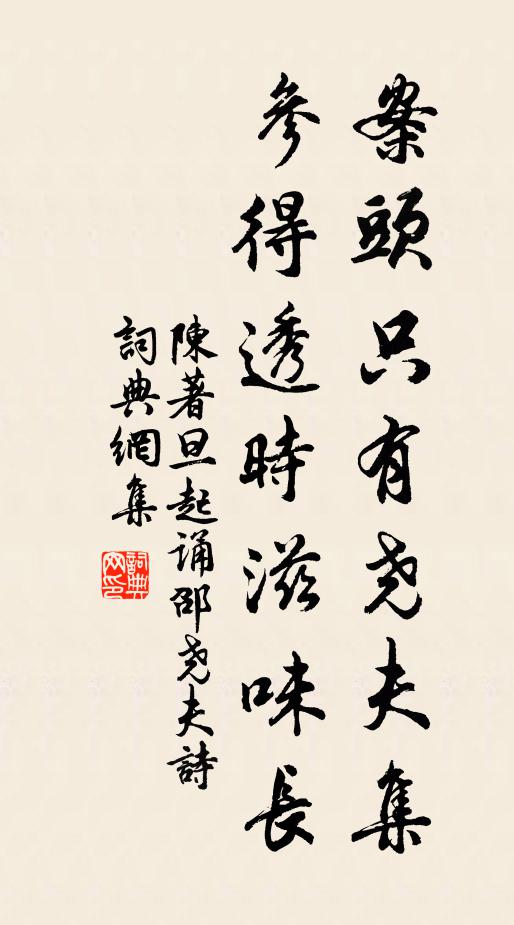 案頭只有尧夫集
參得透時滋味長
陳著旦起诵邵尧夫詩
詞典網集
詞典網印